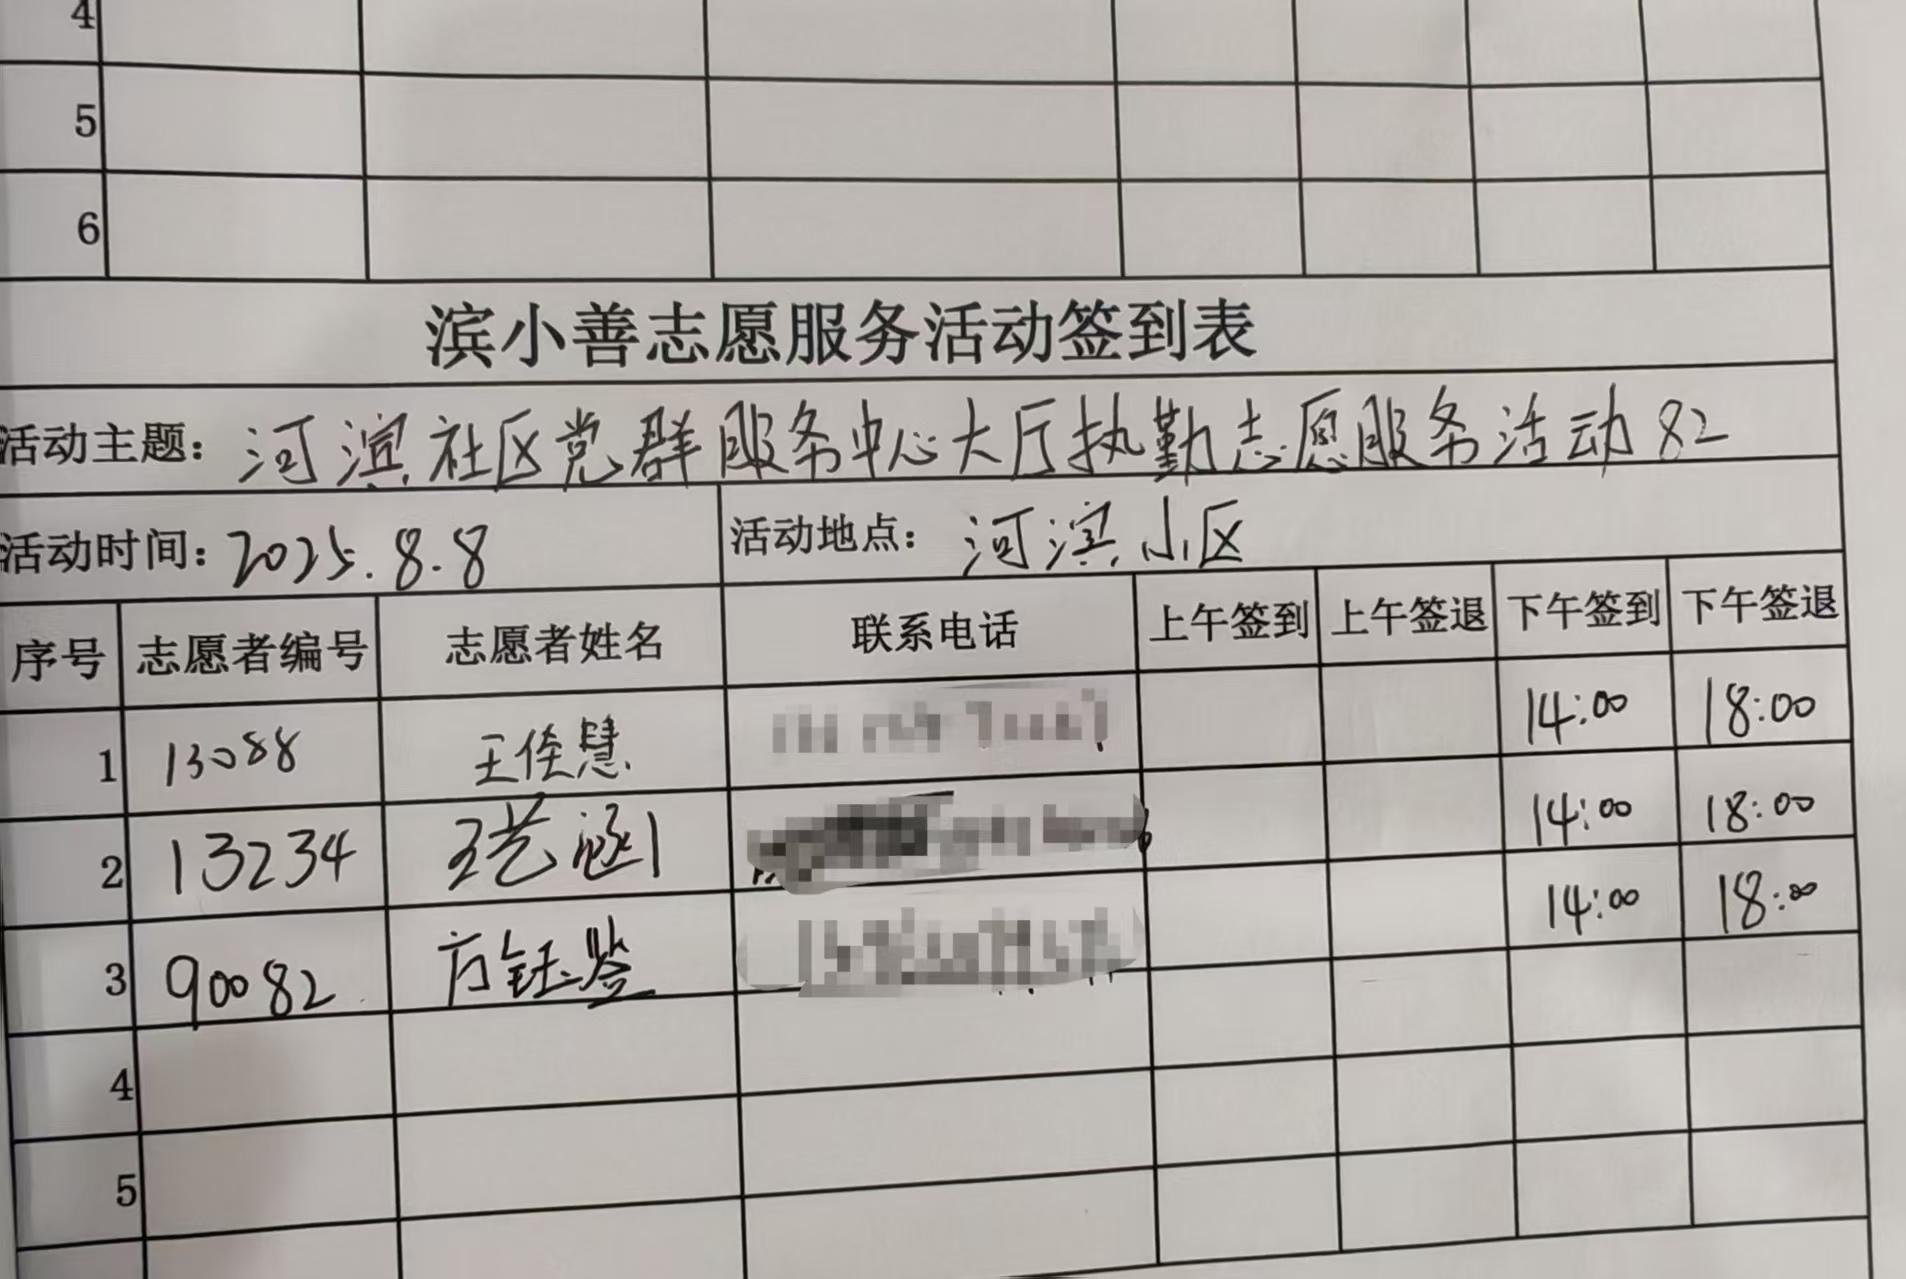 4
5
6
滨小善志愿服务活动签到表
活动主题：河滨社区党群服务中心大厅执勤志愿服务活动82
活动时间：2025.8.8 活动地点：河滨小区
序号 志愿者编号 志愿者姓名 联系电话 上午签到 上午签退 下午签到 下午签退
1 13088 王佳慧 14:00 18:00
2 13234 王艺涵 14:00 18:00
3 90082 方钰鉴 14:00 18:00
4
5